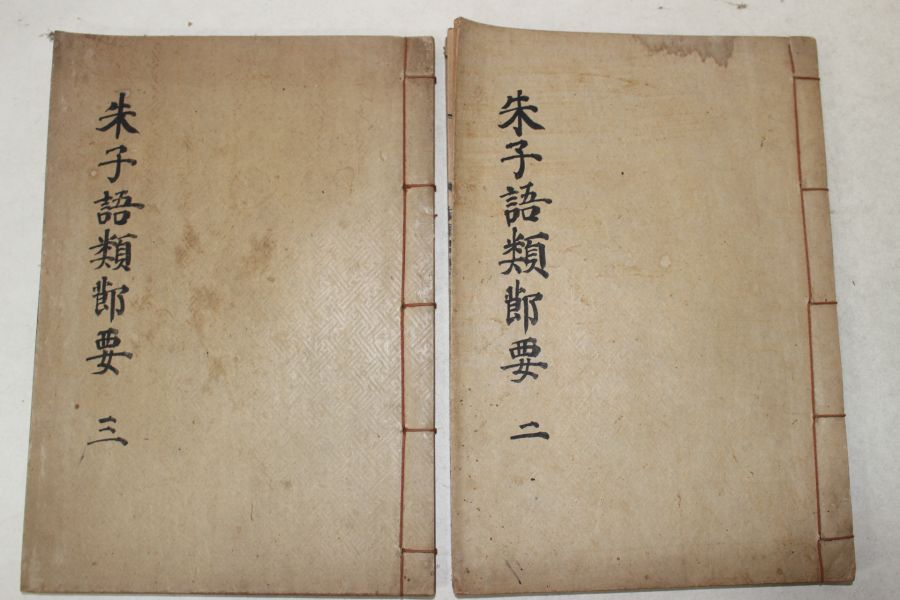 朱子語類節要 二
朱子語類節要 三